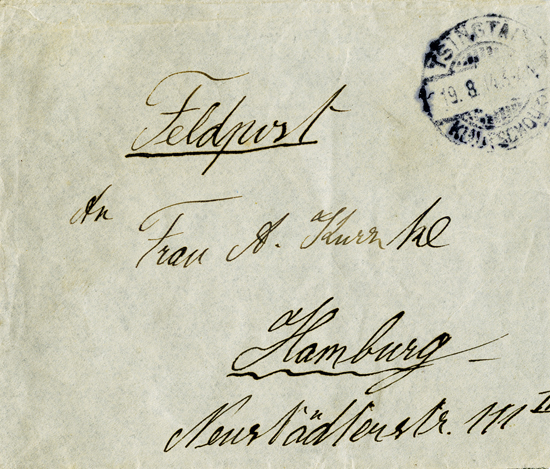 TSINGTAU
19.8.14
KIAUTSCHOU
Feldpost
An
Frau A.
Hamburg
Neustädterstr. 111